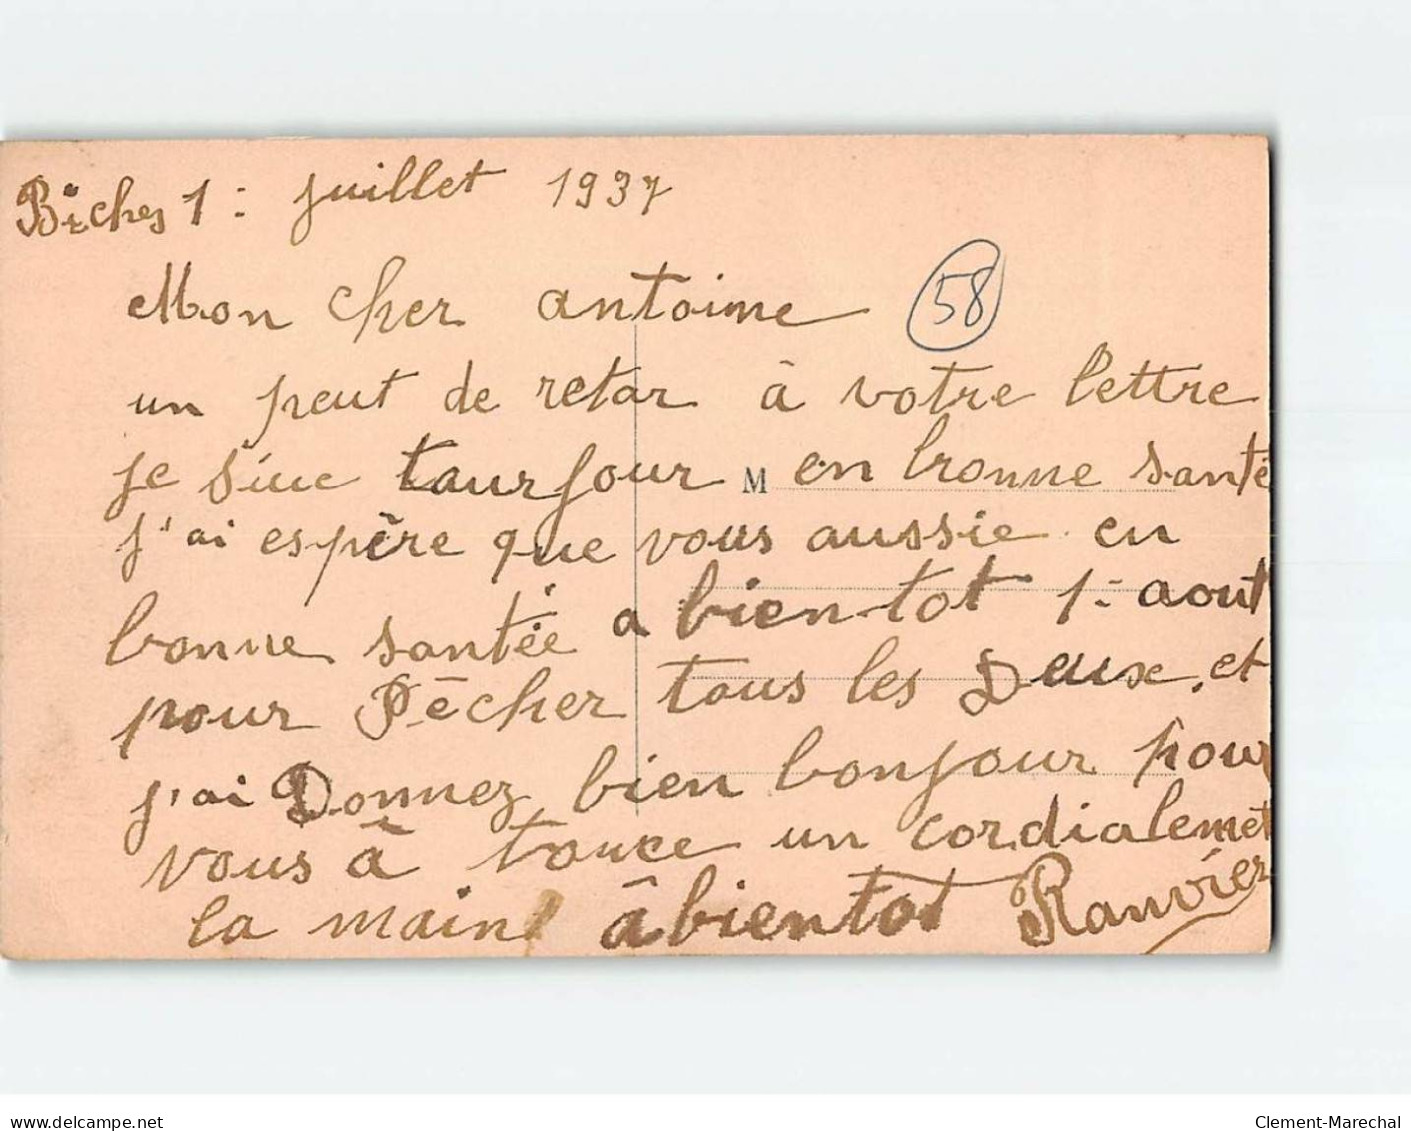 Biches 1: juillet 1937
Mon cher antoine
58
un peut de retar à votre lettre
je suie tourjour en bonne santé
M
j'ai espère que vous aussie en
bonne santée a bientot 1: aout
pour Pêcher tous les Deux, et
j'ai Donnez bien bonjour pour
vous à touce un cordialemet
la main àbientot Ranvier
delcampe.net
Clement-Marechal